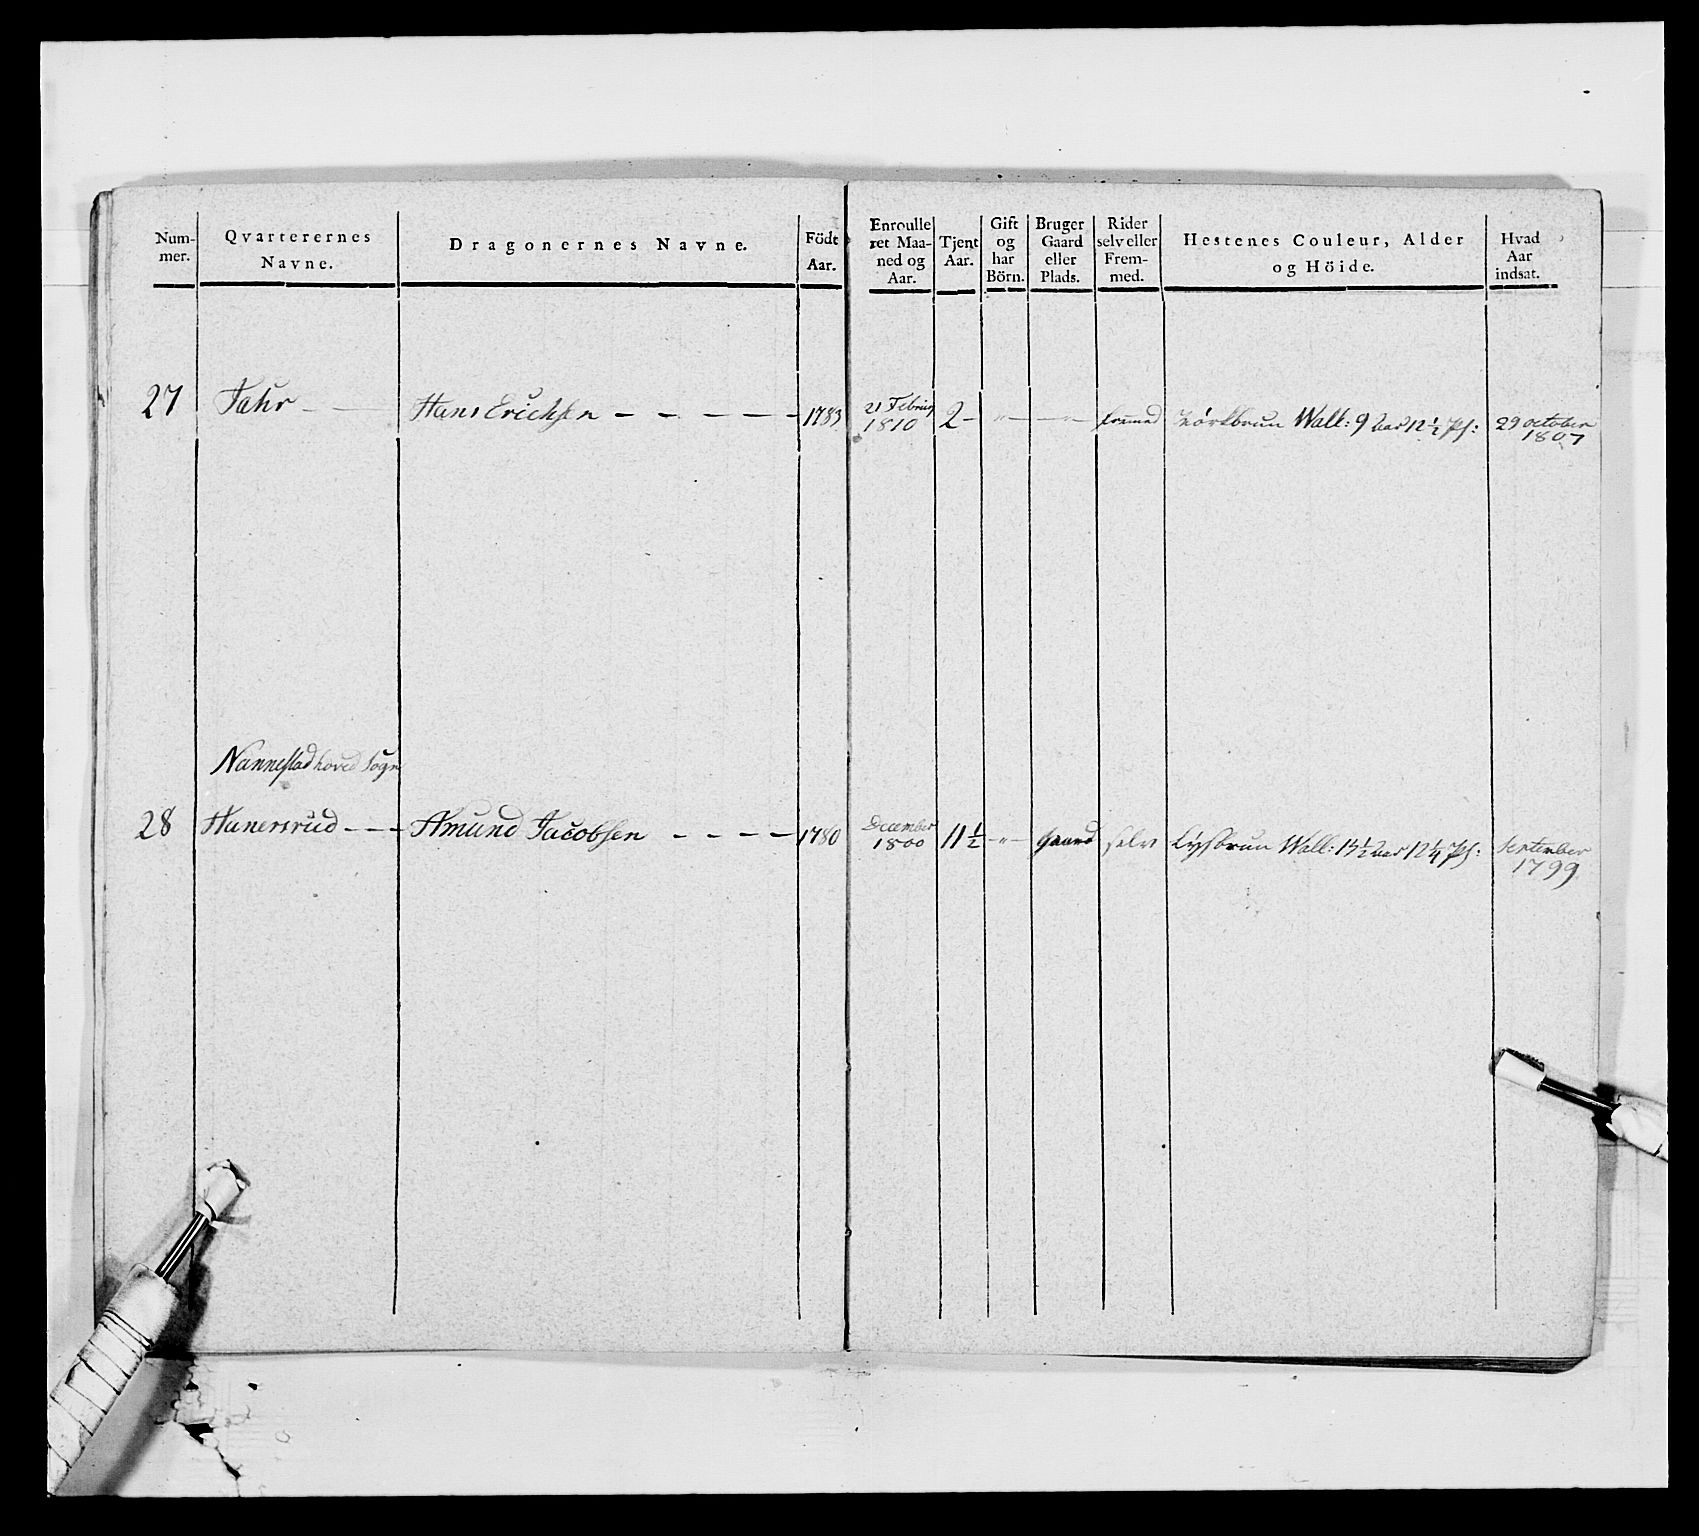 Num-
mer.
Qvarterernes
Navne.
Dragonernes Navne.
Födt
Aar.
Enroulle
ret Maa-
ned og
Aar.
Tjent
Aar.
Gift
og
har
Börn.
Bruger
Gaard
eller
Plads.
Rider
selv eller
Frem-
med.
Hestenes Couleur, Alder
og Höide.
Hvad
Aar
indsat.
27 Hans Erichsen - - - - - - 1783
21 Februar
1810 2 - - " - - " - fremed Mörkbrun Wall: 9 Aar 12 1/2 Pf: 29 october
1807
Nannestad hoved Sogn
28 Hanersrud - - - Amund Jacobsen - - - - 1780
December
1800 11 1/2 - " - Gaard selv Lysbrun Wall: 15 1/2 Aar 12 1/4 Pf: September
1799